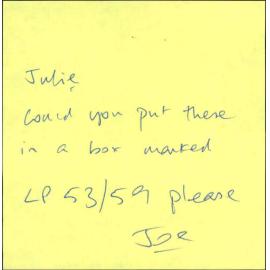 Julie
Could you put these
in a box marked
LP 53/59 please
Joe